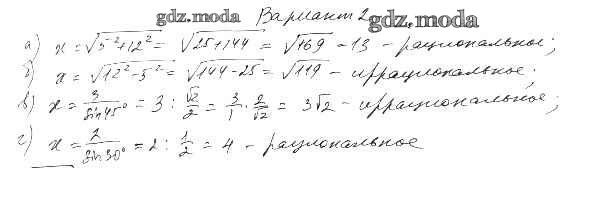 gdz.moda Вариант 2 gdz.moda
а) x = √(5² + 12²) = √(25+144) = √169 - 13 - рациональное;
б) x = √(12² - 5²) = √(144-25) = √119 - иррациональное;
в) x = 3/sin 45° = 3 : √2/2 = 3/1 · 2/√2 = 3√2 - иррациональное;
г) x = 2/sin 30° = 2 : 1/2 = 4 - рациональное